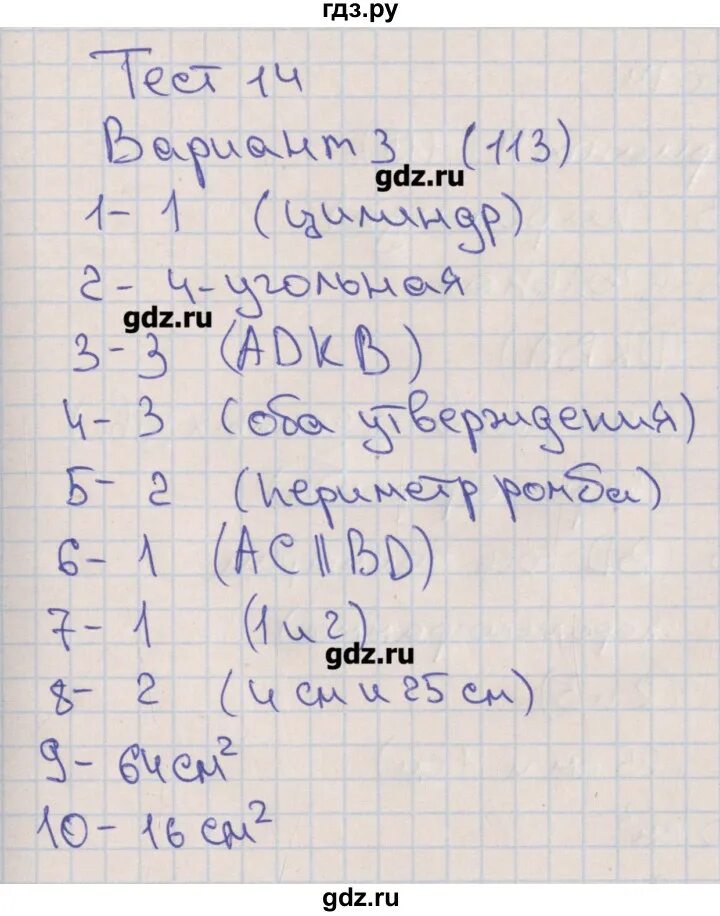 гдз.ру
Тест 14
Вариант 3 (113)
gdz.ru
1- 1 (цилиндр)
2- 4-угольная
gdz.ru
3-3 (ADKB)
4- 3 (оба утверждения)
5- 2 (периметр ромба)
6- 1 (AC||BD)
7- 1 (1 и 2)
gdz.ru
8- 2 (4 см и 25 см)
9- 64 см²
10- 16 см²
gdz.ru